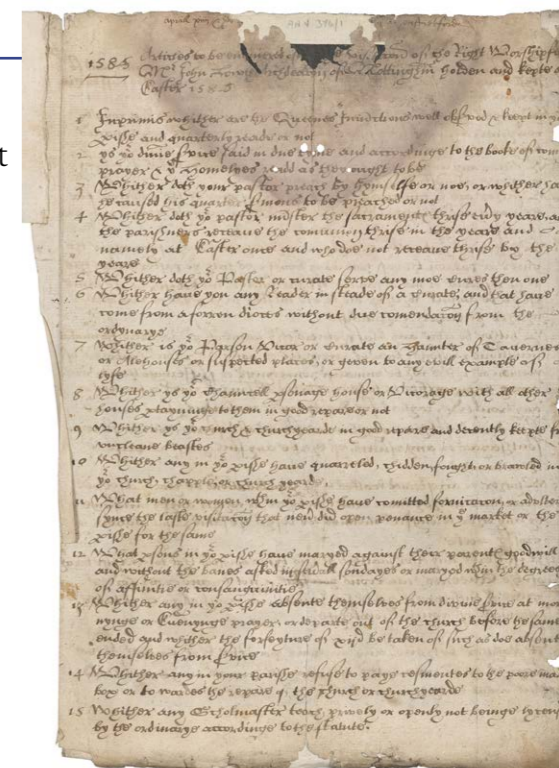 t
AN/A 39b/1
1585 Articles to be enquired of visitacion of the Right Worshipfu
Mr John Archdeacon of Nottingham holden and kepte
Easter 1585
1 Inprimis whither are the Queenes Iniunctions well observed & kept in yo
p'isshe and quarterly reade or not
2 ys yor divine s'vice said in due tyme and accordinge to the booke of com
prayer & ye homelyes read as they ought to be
3 Whither doth your pastor preach by himselfe or noe, or whither ha
he caused his quarter s'mons to be preached or not
4 Whither doth yor pastor minister the sacramentes thrise every yeare, a
the parishners receave the comunion thrise in the yeare and
namely at Easter once and who doe not receave thrise by the
yeare
5 Whither doth yor Pastor or curate serve any moe cures then one
6 Whither have you any Reader in steade of a Curate, and that have
come from a forren dioces without due comendacon from the
ordynarye
7 Whither is yor Parson Vicar or curate an haunter of Tavernes
or Alehouses or suspected places, or geven to any evill example of
lyfe
8 Whither ys yor Chauncell p'sonage house or Vicarage with all other
houses p'tayninge to them in good repare or not
9 Whither ys yor church & churchyearde in good repare and decently kepte fr
uncleane beastes
10 Whither any in yor p'isshe have quarreled, chidden, fought, or brawled in
yor church chapple, or church yeard
11 What men or women, wthin yor p'isshe have comitted fornicacon, or adulte
synce the laste visitacon that never did open penance in ye market or the
p'isshe for the same
12 What p'sons in yor p'isshe have maryed against their parentes goodwill
and without the banes asked in severall sondayes or maryed wthin the degree
of affinitie or consanguinitie
13 Whither any in yor p'isshe absente themselves from divine s'vice at mor
nynge or Evenynge prayer or departe out of the church before the same
ended and whither the forfeyture of xijd be taken of such as doe absent
themselves from s'vice
14 Whither any in your Parisshe refuse to paye cesmentes to the pore man
box or to wardes the repare of the church or churchyearde
15 Whither any Scholmaster teach prively or openly not beinge lycen
by the ordinarye accordinge to the statute.